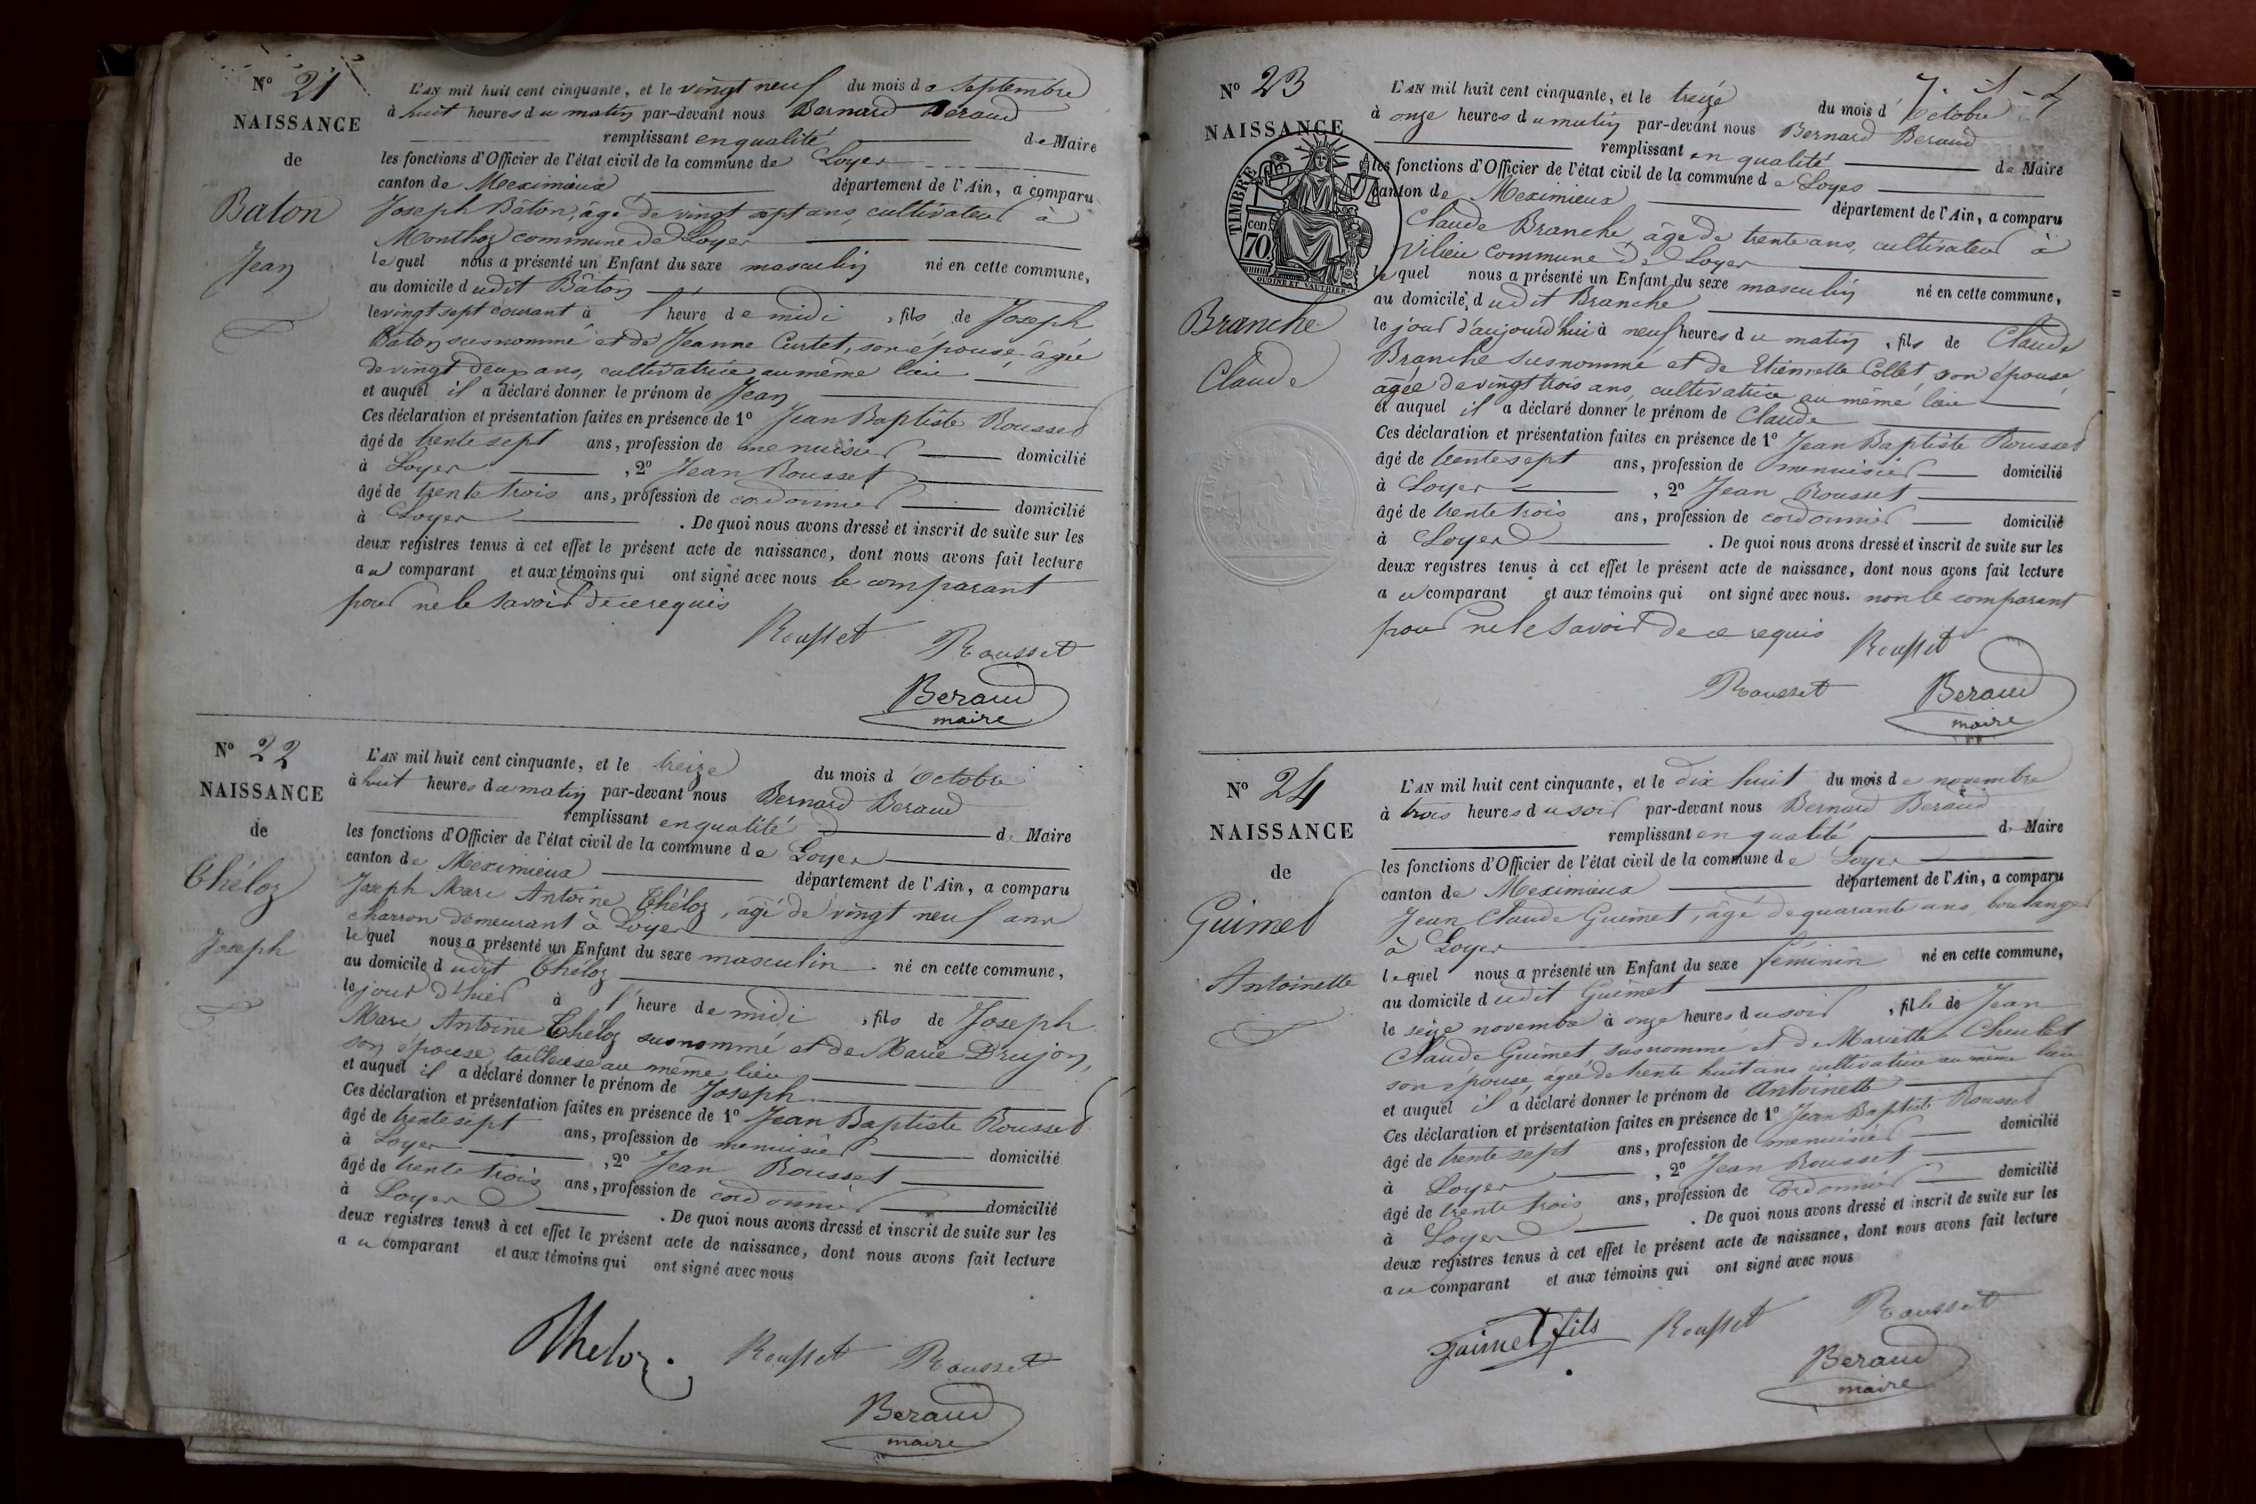 N° 21
NAISSANCE
de
Baton
Jean
L'AN mil huit cent cinquante, et le vingt neuf du mois de Septembre
à huit heures du matin par-devant nous Bernard Beraud
remplissant en qualité de Maire
les fonctions d'Officier de l'état civil de la commune de Loyes
canton de Meximieux département de l'Ain, a comparu
Joseph Bâton, âgé de vingt sept ans, cultivateur à
Monthoz commune de Loyes
lequel nous a présenté un Enfant du sexe masculin né en cette commune,
au domicile dudit Bâton
le vingt sept courant à l'heure de midi, fils de Joseph
Bâton susnommé et de Jeanne Curtet, son épouse âgée
de vingt deux ans, cultivatrice au même lieu
et auquel il a déclaré donner le prénom de Jean
Ces déclaration et présentation faites en présence de 1° Jean Baptiste Rousset
âgé de trente sept ans, profession de menuisier domicilié
à Loyes, 2° Jean Rousset
âgé de trente trois ans, profession de cordonnier domicilié
à Loyes. De quoi nous avons dressé et inscrit de suite sur les
deux registres tenus à cet effet le présent acte de naissance, dont nous avons fait lecture
au comparant et aux témoins qui ont signé avec nous le comparant
pour ne le savoir de ce requis
Rousset Rousset
Beraud
maire
N° 22
NAISSANCE
de
Théloz
Joseph
L'AN mil huit cent cinquante, et le treize du mois d'Octobre
à huit heures du matin par-devant nous Bernard Beraud
remplissant en qualité de Maire
les fonctions d'Officier de l'état civil de la commune de Loyes
canton de Meximieux département de l'Ain, a comparu
Joseph Marc Antoine Théloz, âgé de vingt neuf ans
charron demeurant à Loyes
lequel nous a présenté un Enfant du sexe masculin né en cette commune,
au domicile dudit Théloz
le jour d'hier à l'heure de midi, fils de Joseph
Marc Antoine Théloz susnommé et de Marie Drujon,
son épouse, tailleuse au même lieu
et auquel il a déclaré donner le prénom de Joseph
Ces déclaration et présentation faites en présence de 1° Jean Baptiste Rousset
âgé de trente sept ans, profession de menuisier domicilié
à Loyes, 2° Jean Rousset
âgé de trente trois ans, profession de cordonnier domicilié
à Loyes. De quoi nous avons dressé et inscrit de suite sur les
deux registres tenus à cet effet le présent acte de naissance, dont nous avons fait lecture
au comparant et aux témoins qui ont signé avec nous
Theloz. Rousset Rousset
Beraud
maire
N° 23
NAISSANCE
de
TIMBRE
70 cen.
OUDINÉ ET VAUTHIER
Branche
Claude
L'AN mil huit cent cinquante, et le treize du mois d'Octobre
à onze heures du matin par-devant nous Bernard Beraud
remplissant en qualité de Maire
les fonctions d'Officier de l'état civil de la commune de Loyes
canton de Meximieux département de l'Ain, a comparu
Claude Branche, âgé de trente ans, cultivateur à
Vilieu commune de Loyes
lequel nous a présenté un Enfant du sexe masculin né en cette commune,
au domicile dudit Branche
le jour d'aujourd'hui à neuf heures du matin, fils de Claude
Branche susnommé et de Etiennette Collet son épouse
âgée de vingt trois ans, cultivatrice au même lieu
et auquel il a déclaré donner le prénom de Claude
Ces déclaration et présentation faites en présence de 1° Jean Baptiste Rousset
âgé de trente sept ans, profession de menuisier domicilié
à Loyes, 2° Jean Rousset
âgé de trente trois ans, profession de cordonnier domicilié
à Loyes. De quoi nous avons dressé et inscrit de suite sur les
deux registres tenus à cet effet le présent acte de naissance, dont nous avons fait lecture
au comparant et aux témoins qui ont signé avec nous. non le comparant
pour ne le savoir de ce requis Rousset
Rousset Beraud
maire
N° 24
NAISSANCE
de
Guimet
Antoinette
L'AN mil huit cent cinquante, et le dix huit du mois de novembre
à trois heures du soir par-devant nous Bernard Beraud
remplissant en qualité de Maire
les fonctions d'Officier de l'état civil de la commune de Loyes
canton de Meximieux département de l'Ain, a comparu
Jean Claude Guimet, âgé de quarante ans, boulanger
à Loyes
lequel nous a présenté un Enfant du sexe féminin né en cette commune,
au domicile dudit Guimet
le seize novembre à onze heures du soir, fille de Jean
Claude Guimet, susnommé et de Mariette
son épouse âgée de trente huit ans cultivatrice au même lieu
et auquel il a déclaré donner le prénom de Antoinette
Ces déclaration et présentation faites en présence de 1° Jean Baptiste Rousset
âgé de trente sept ans, profession de menuisier domicilié
à Loyes, 2° Jean Rousset
âgé de trente trois ans, profession de cordonnier domicilié
à Loyes. De quoi nous avons dressé et inscrit de suite sur les
deux registres tenus à cet effet le présent acte de naissance, dont nous avons fait lecture
au comparant et aux témoins qui ont signé avec nous
Guimet fils Rousset Rousset
Beraud
maire